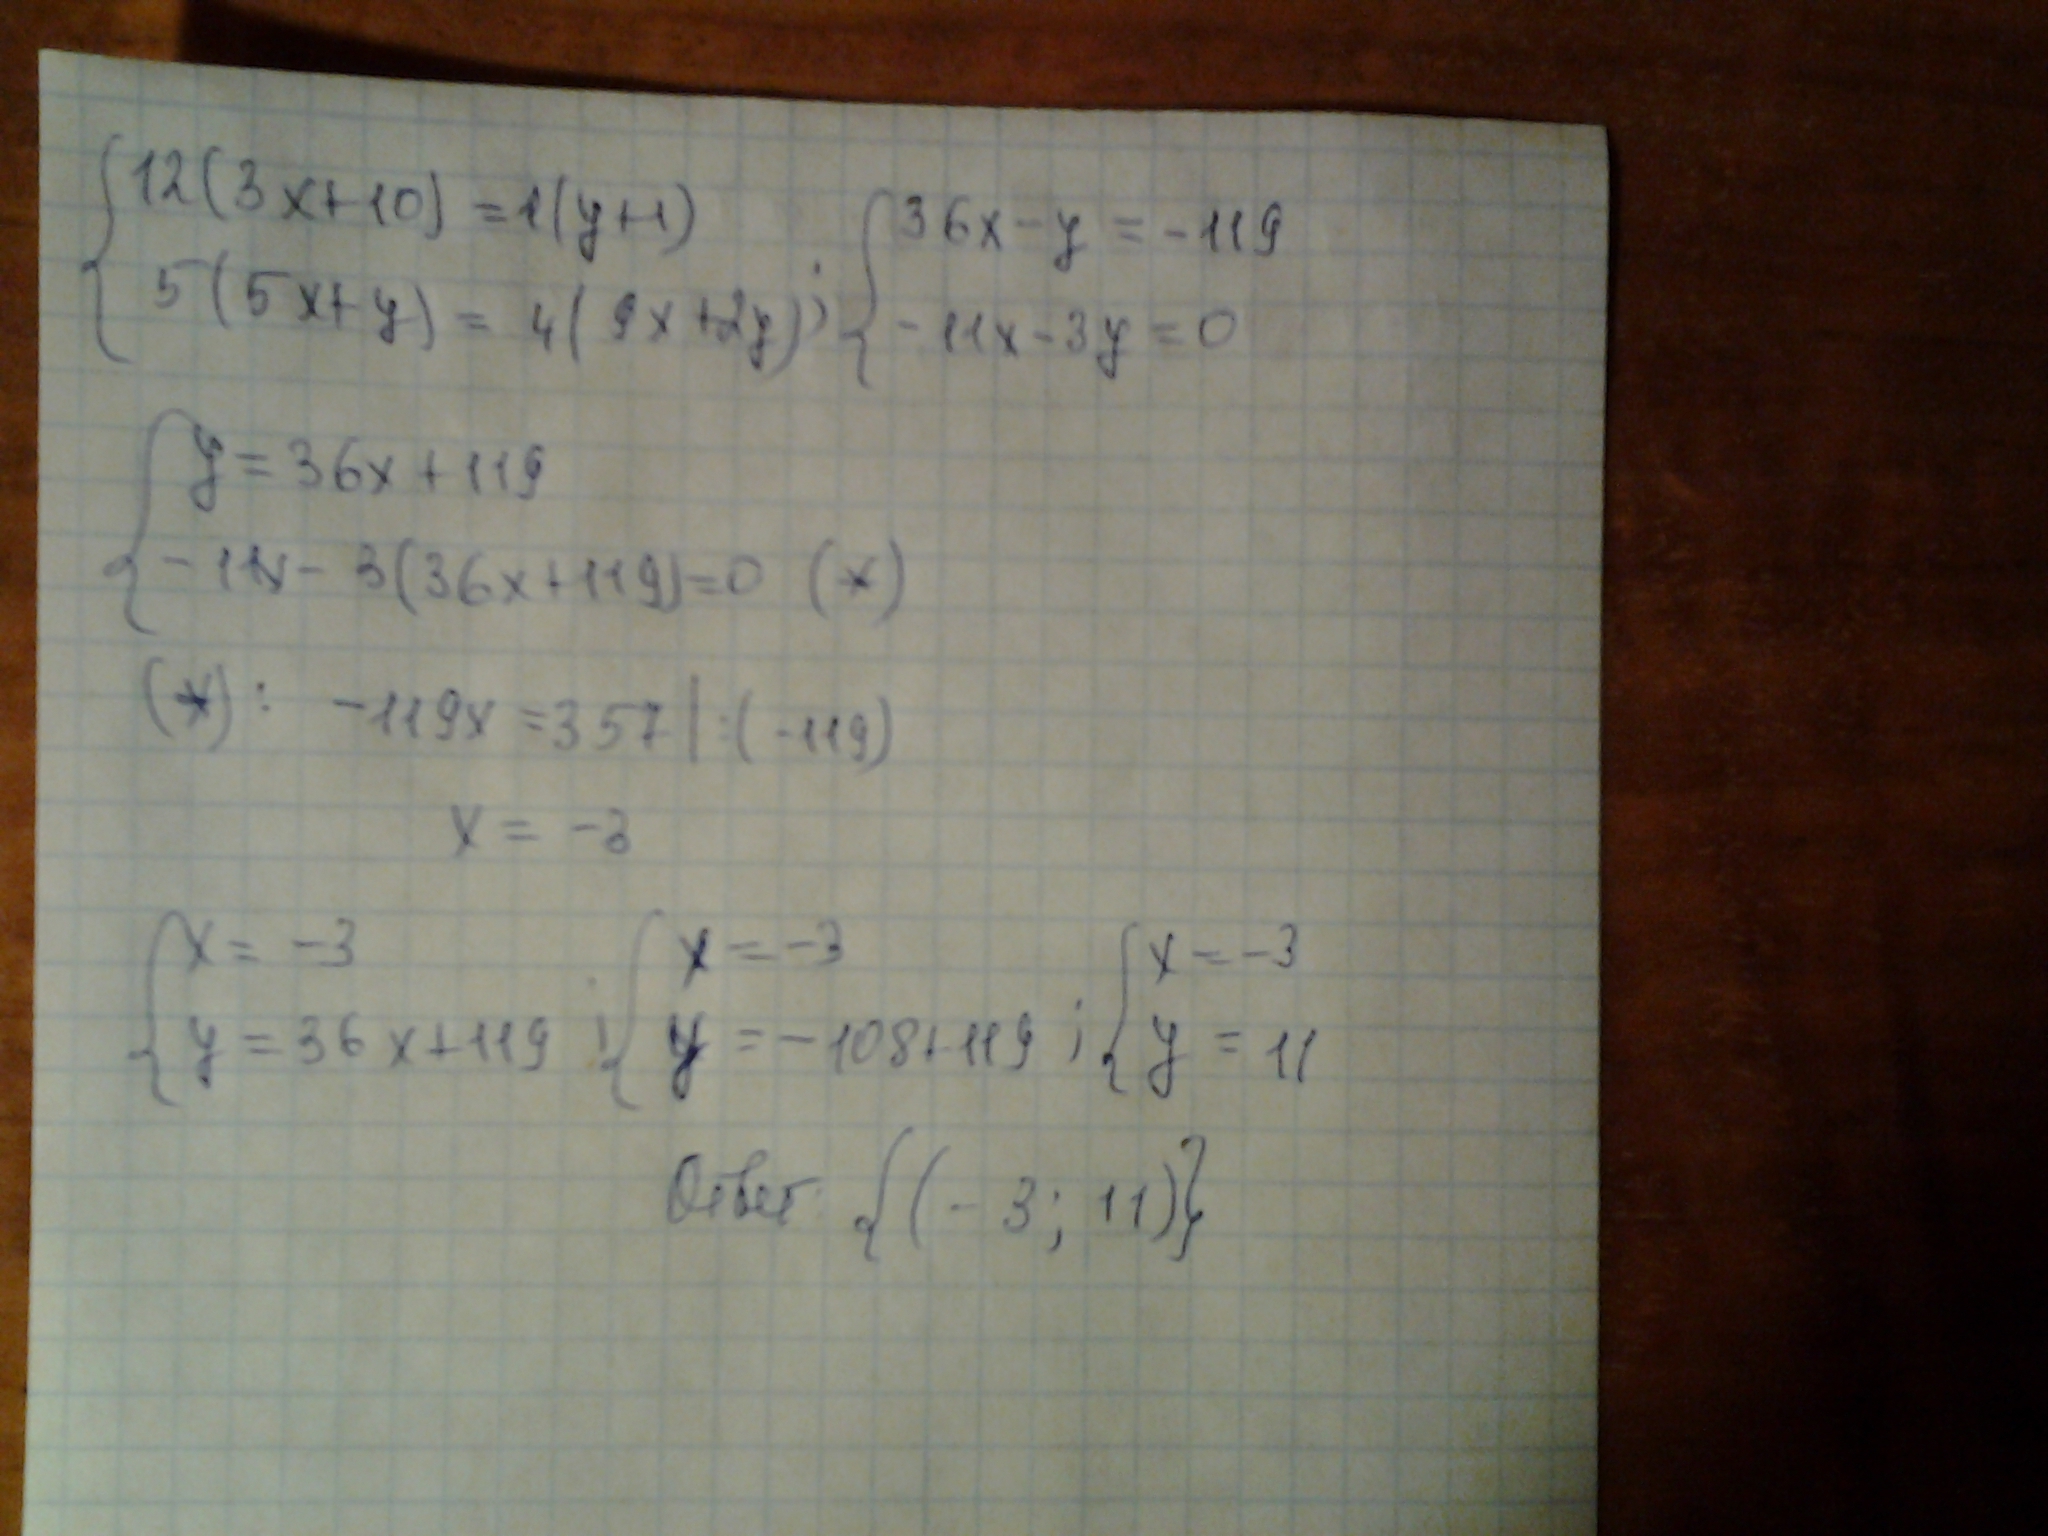 { 12(3x+10) = 1(y+1)
5(5x+y) = 4(9x+2y) ; { 36x - y = -119
-11x - 3y = 0
{ y = 36x + 119
-11x - 3(36x+119) = 0 (*)
(*): -119x = 357 | :(-119)
x = -3
{ x = -3
y = 36x+119 ; { x = -3
y = -108+119 ; { x = -3
y = 11
Ответ: {(-3; 11)}